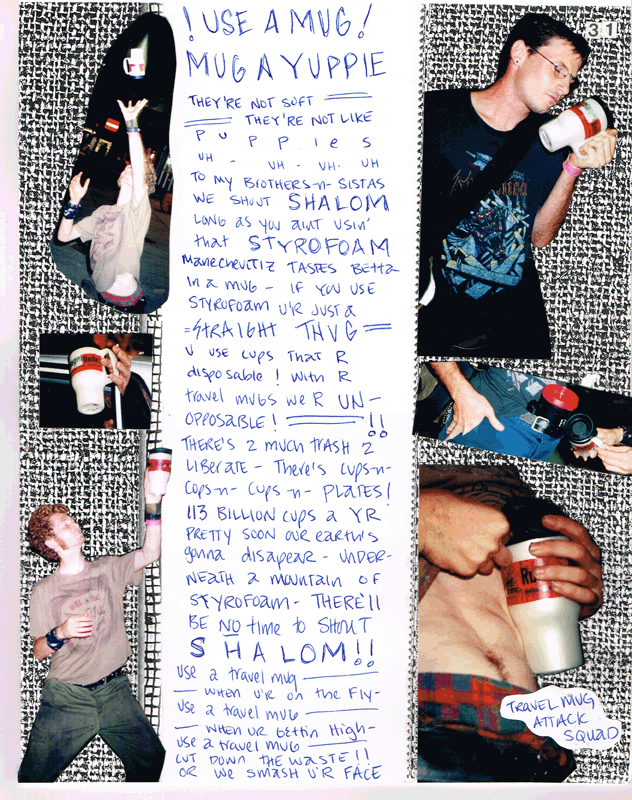 ! USE A MUG!
MUG A YUPPIE
THEY'RE NOT SOFT
THEY'RE NOT LIKE
P U P P I e S
UH - UH - UH - UH
TO MY BROTHERS-n-SISTAS
WE SHOUT SHALOM
LONG AS YOU AINT USIN'
that STYROFOAM
MANECHEVITIZ TASTES BETTA
In a MUG - IF YOU USE
STYROFOAM U'R JUST A
=STRAIGHT THUG=
U USE CUPS THAT R
disposable! With R
travel mugs we R UN-
OPPOSABLE! !!
THERE'S 2 MUCH TRASH 2
LIBERATE - There's CUPS-n-
COPS-n- CUPS-n- PLATES!
113 BILLION CUPS a YR
PRETTY SOON OUR earth's
gonna disapear - UNDER-
NEATH a mountain OF
STYROFOAM - THERE'll
BE NO time to SHOUT
SHALOM!!
use a travel mug
— WHEN U'R on the FLY-
Use a travel mug
— WHEN UR GETTIN HIGH-
use a travel mug
CUT DOWN THE WASTE!!
OR WE SMASH U'R FACE
31
TRAVEL MUG
ATTACK
SQUAD